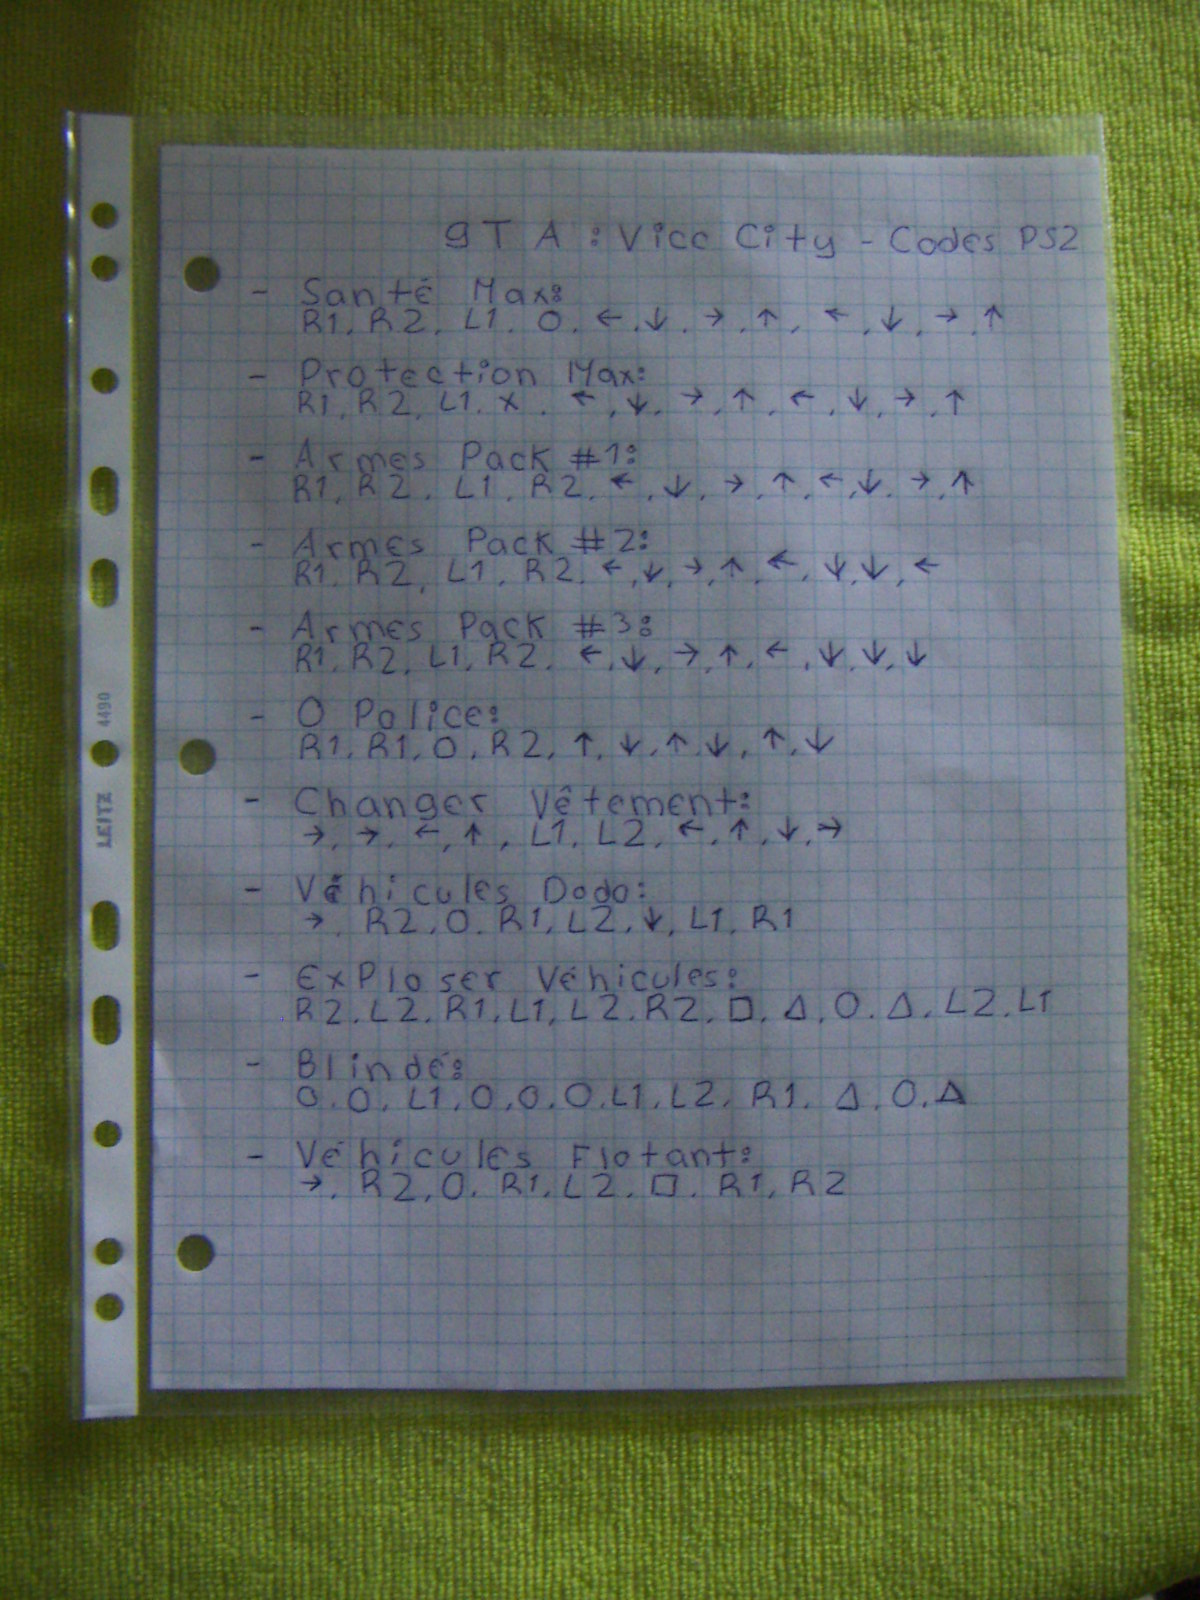 GTA : Vice City - Codes PS2
- Santé Max:
R1, R2, L1, O, ←, ↓, →, ↑, ←, ↓, →, ↑
- Protection Max:
R1, R2, L1, X, ←, ↓, →, ↑, ←, ↓, →, ↑
- Armes Pack #1:
R1, R2, L1, R2, ←, ↓, →, ↑, ←, ↓, →, ↑
- Armes Pack #2:
R1, R2, L1, R2, ←, ↓, →, ↑, ←, ↓, ↓, ←
- Armes Pack #3:
R1, R2, L1, R2, ←, ↓, →, ↑, ←, ↓, ↓, ↓
- 0 Police:
R1, R1, O, R2, ↑, ↓, ↑, ↓, ↑, ↓
- Changer Vêtement:
→, →, ←, ↑, L1, L2, ←, ↑, ↓, →
- Véhicules Dodo:
→, R2, O, R1, L2, ↓, L1, R1
- Exploser Véhicules:
R2, L2, R1, L1, L2, R2, □, △, O, △, L2, L1
- Blindé:
O, O, L1, O, O, O, L1, L2, R1, △, O, △
- Véhicules Flotant:
→, R2, O, R1, L2, □, R1, R2
LEITZ 4490